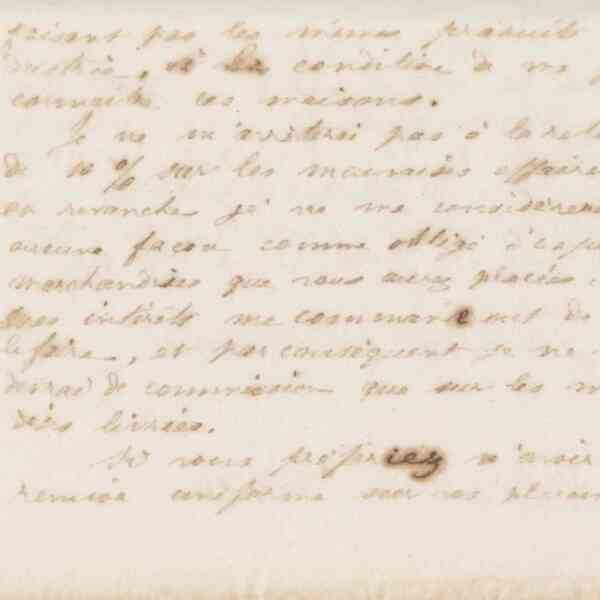 faisant pas les mêmes produits
, à la condition de me
connaître ces maisons.
Je ne m'arrêterai pas à la
de 10 % sur les mauvaises affaires
en revanche je ne me considérerai
aucune façon comme obligé
marchandises que vous aurez placées.
intérêts me commanderont de
le faire, et par conséquent je ne
de commission que sur les
dises livrées.
Si vous préfériez n'avoir
remise uniforme sur vos